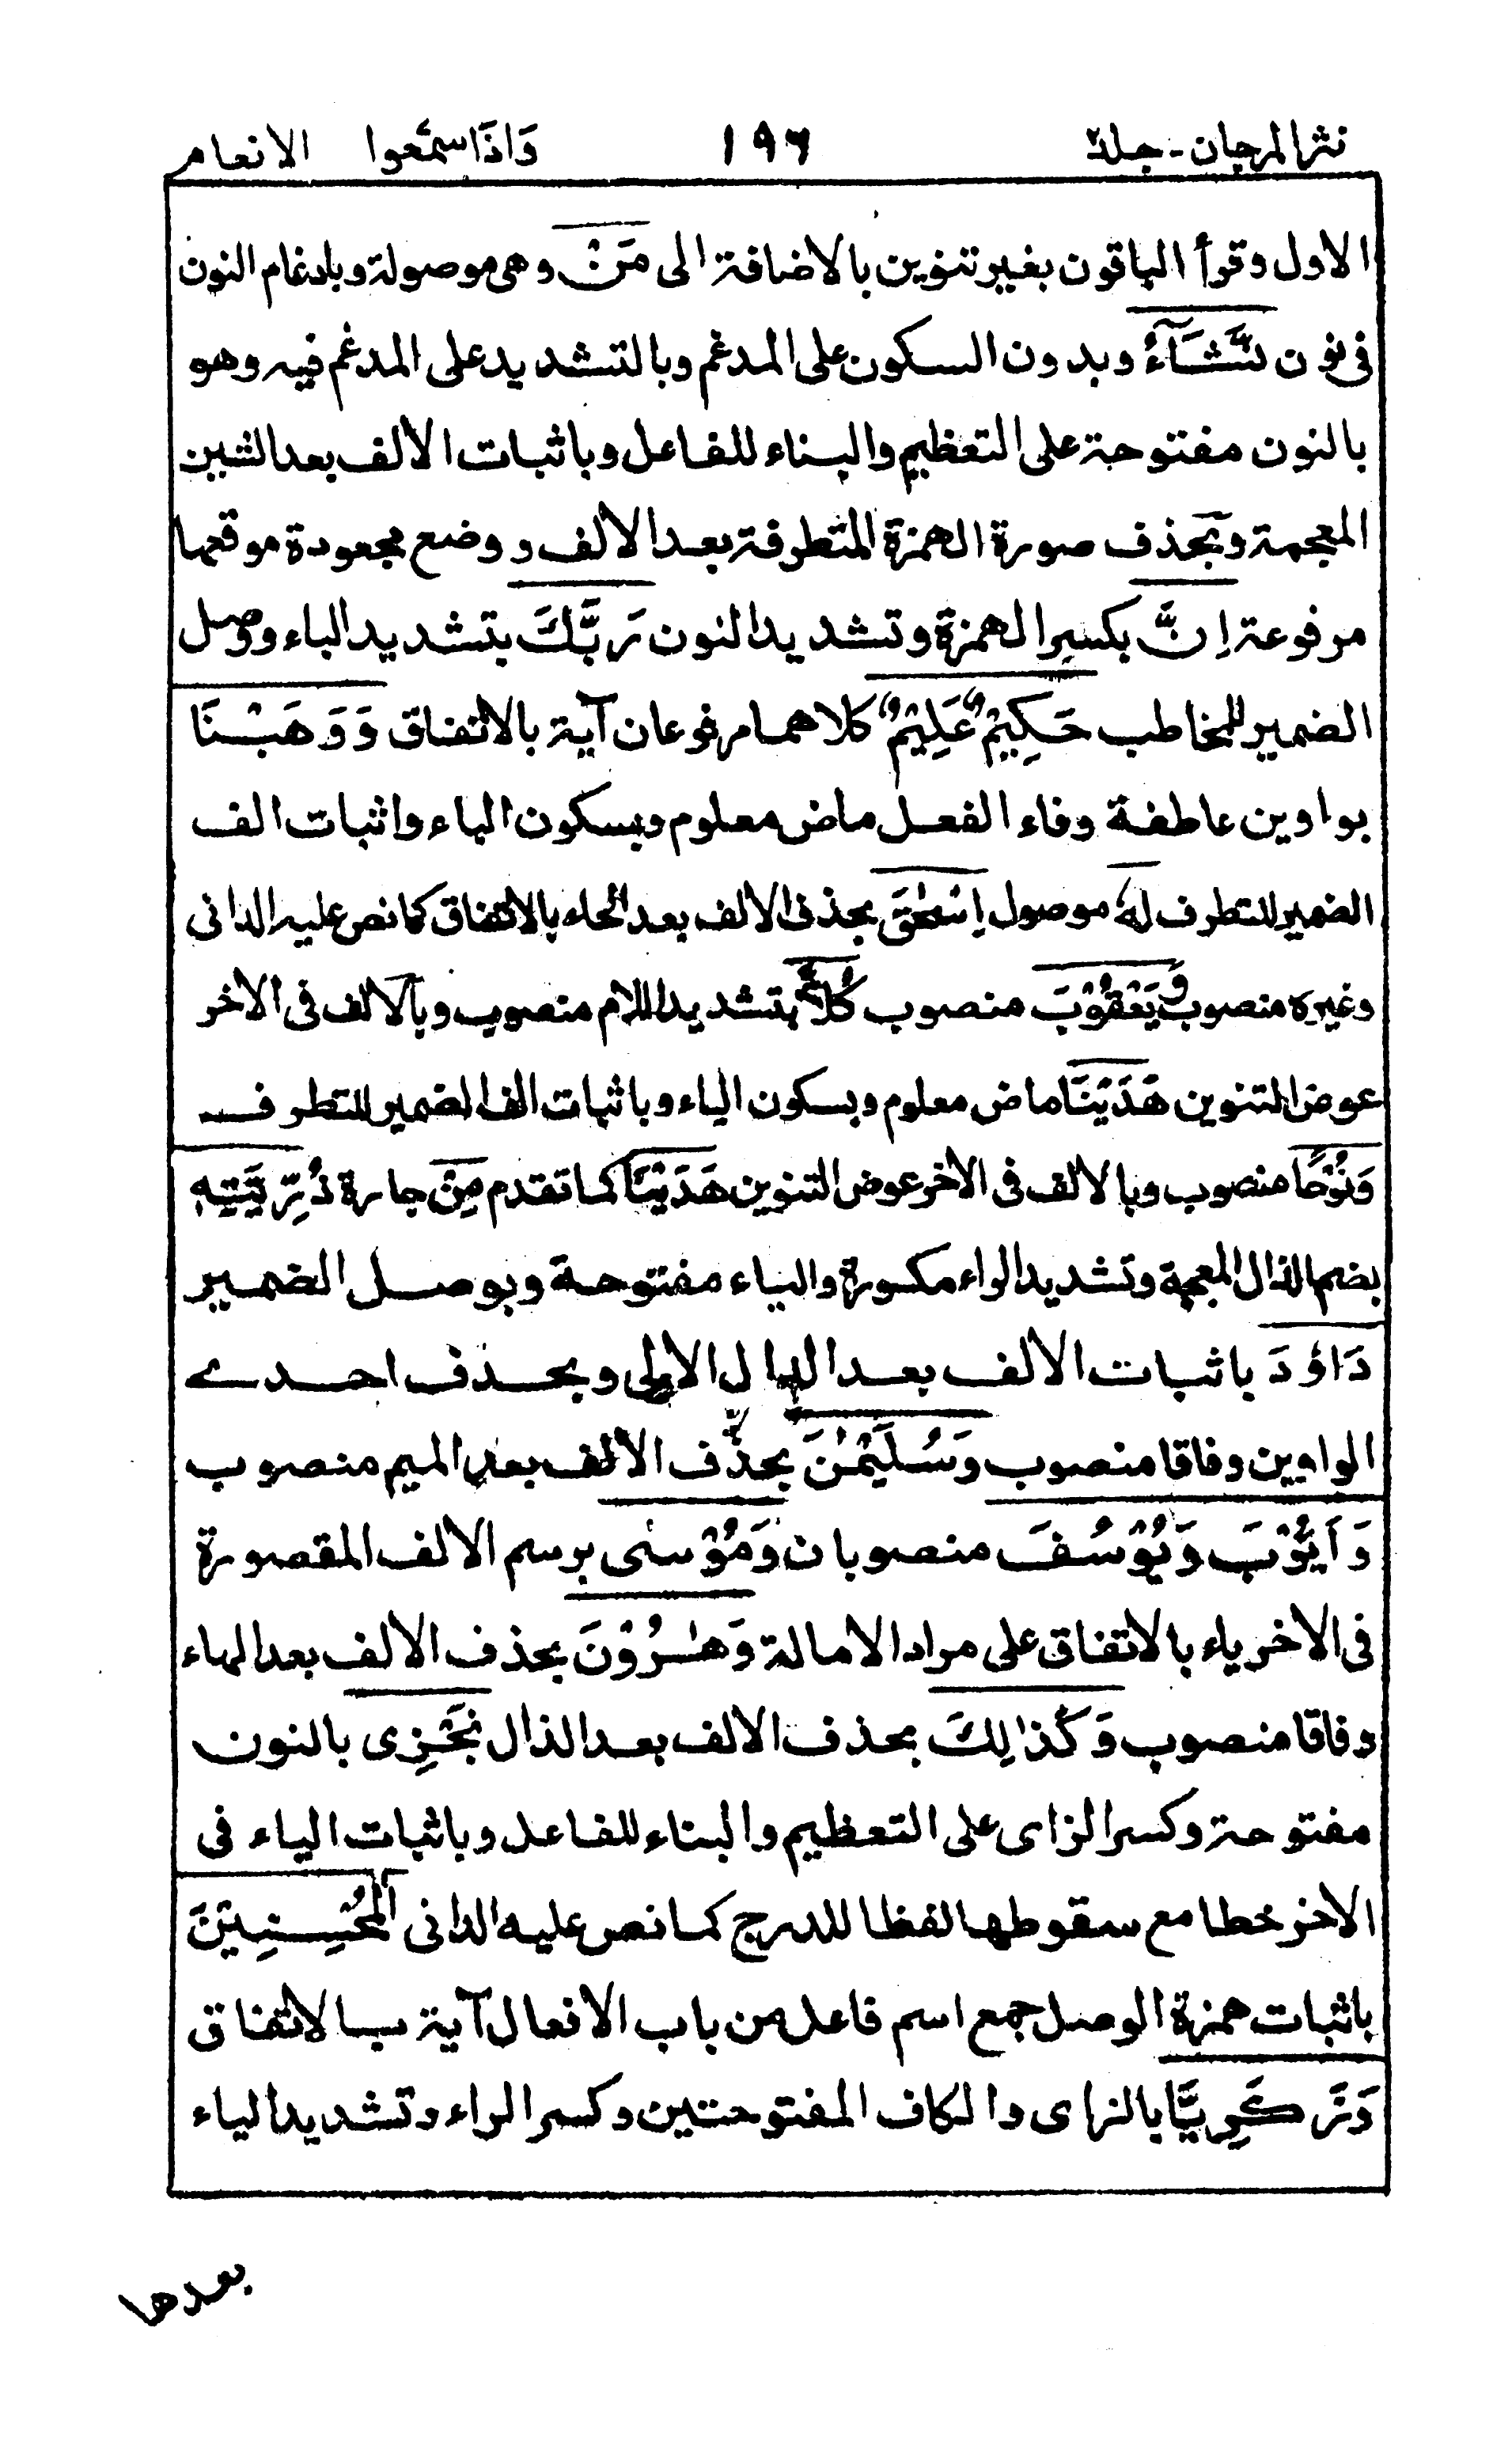 نثر المرجان - جلد ٢ ١٩٦ وَاِذَا سَمِعُوا الانعام
الاول وقرأ الباقون بغير تنوين بالاضافة الى مَنْ وهى موصولة وبادغام النون
فى نون نَّشَآءُ وبدون السكون على المدغم وبالتشديد على المدغم فيه وهو
بالنون مفتوحة على التعظيم والبناء للفاعل وباثبات الالف بعد الشين
المعجمة وبحذف صورة الهمزة المتطرفة بعد الالف و وضع مجعودة موقعها
مرفوعة اِنَّ بكسر الهمزة وتشديد النون رَبَّكَ بتشديد الباء ووصل
الضمير للمخاطب حَكِيْمٌ عَلِيْمٌ كلاهما مرفوعان آية بالاتفاق وَوَهَبْنَا
بواوين عاطفة وفاء الفعل ماض معلوم وبسكون الباء واثبات الف
الضمير للتطرف لَهٗ موصول اِسْحٰقَ بحذف الالف بعد الحاء بالاتفاق كما نص عليه الدانى
وغيره منصوب وَيَعْقُوْبَ منصوب كُلًّا بتشديد اللام منصوب وبالالف فى الاخر
عوض التنوين هَدَيْنَا ماض معلوم وبسكون الياء وباثبات الف الضمير للتطرف
وَنُوْحًا منصوب وبالالف فى الاخر عوض التنوين هَدَيْنَا كما تقدم مِنْ جارة ذُرِّيَّتِهٖ
بضم الذال المعجمة وتشديد الراء مكسورة والياء مفتوحة وبوصل الضمير
دَاوٗدَ باثبات الالف بعد الدال الاولى وبحذف احدے
الواوين وفاقا منصوب وَسُلَيْمٰنَ بحذف الالف بعد الميم منصوب
وَاَيُّوْبَ وَيُوْسُفَ منصوبان وَمُوْسٰى برسم الالف المقصورة
فى الاخر ياء بالاتفاق على مراد الامالة وَهٰرُوْنَ بحذف الالف بعد الهاء
وفاقا منصوب وَكَذٰلِكَ بحذف الالف بعد الذال نَجْزِى بالنون
مفتوحة وكسر الزاى على التعظيم والبناء للفاعل وباثبات الياء فى
الاخر خطا مع سقوطها لفظا للدرج كما نص عليه الدانى الْمُحْسِنِيْنَ
باثبات همزة الوصل جمع اسم فاعل من باب الافعال آية بالاتفاق
وَزَكَرِيَّا بالزاى والكاف المفتوحتين وكسر الراء وتشديد الياء
بعدها